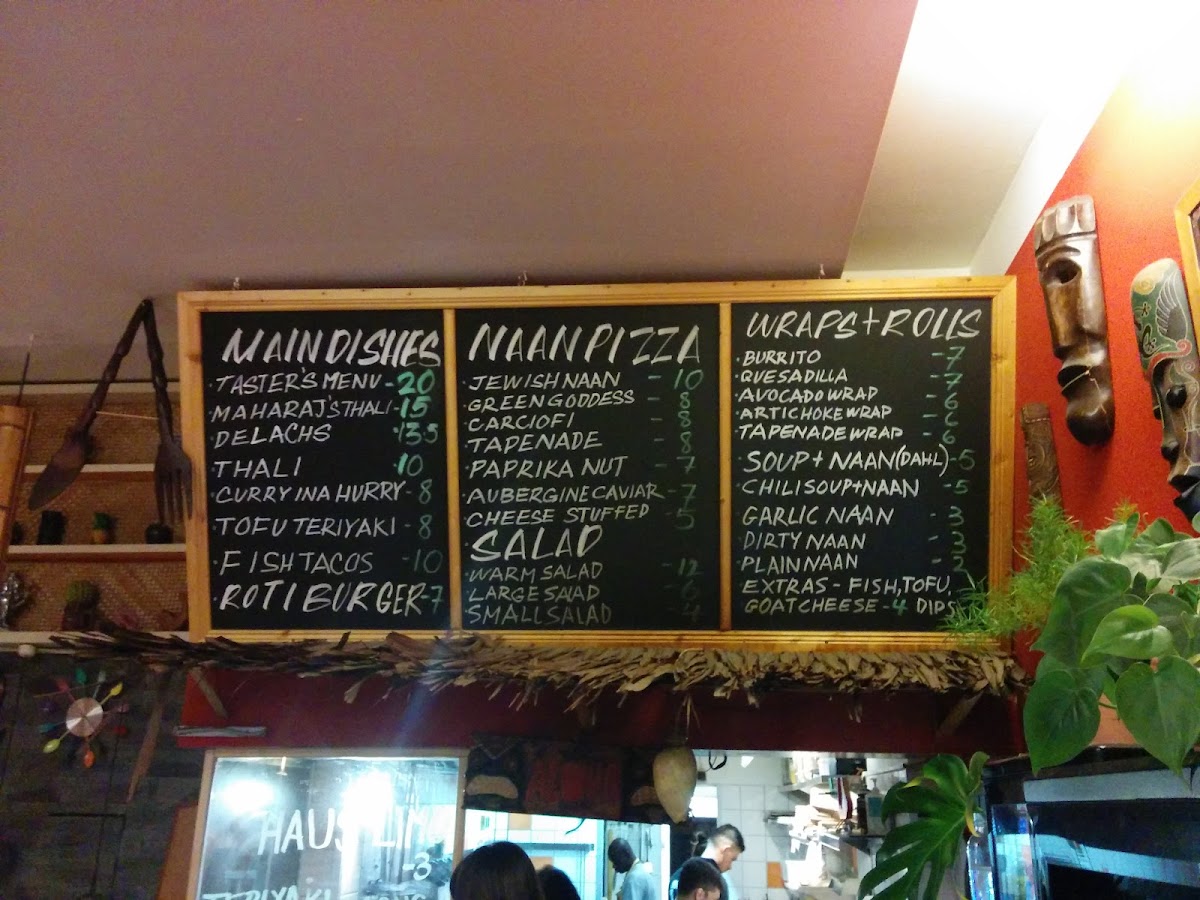 MAIN DISHES
· TASTER'S MENU - 20
· MAHARAJ'S THALI - 15
· DE LACHS · 13.5
· THALI · 10
· CURRY IN A HURRY - 8
· TOFU TERIYAKI - 8
· FISH TACOS - 10
· ROTI BURGER - 7
NAAN PIZZA
· JEWISH NAAN - 10
· GREEN GODDESS - 8
· CARCIOFI - 8
· TAPENADE - 8
· PAPRIKA NUT - 7
· AUBERGINE CAVIAR - 7
· CHEESE STUFFED - 5
SALAD
· WARM SALAD - 12
· LARGE SALAD - 6
· SMALL SALAD - 4
WRAPS + ROLLS
· BURRITO - 7
· QUESADILLA - 7
· AVOCADO WRAP - 6
· ARTICHOKE WRAP - 6
· TAPENADE WRAP - 6
· SOUP + NAAN (DAHL) - 5
· CHILI SOUP + NAAN - 5
· GARLIC NAAN - 3
· DIRTY NAAN - 3
· PLAIN NAAN - 2
· EXTRAS - FISH, TOFU,
GOAT CHEESE - 4 DIPS
HAUS LIM
-3
TERIYAKI